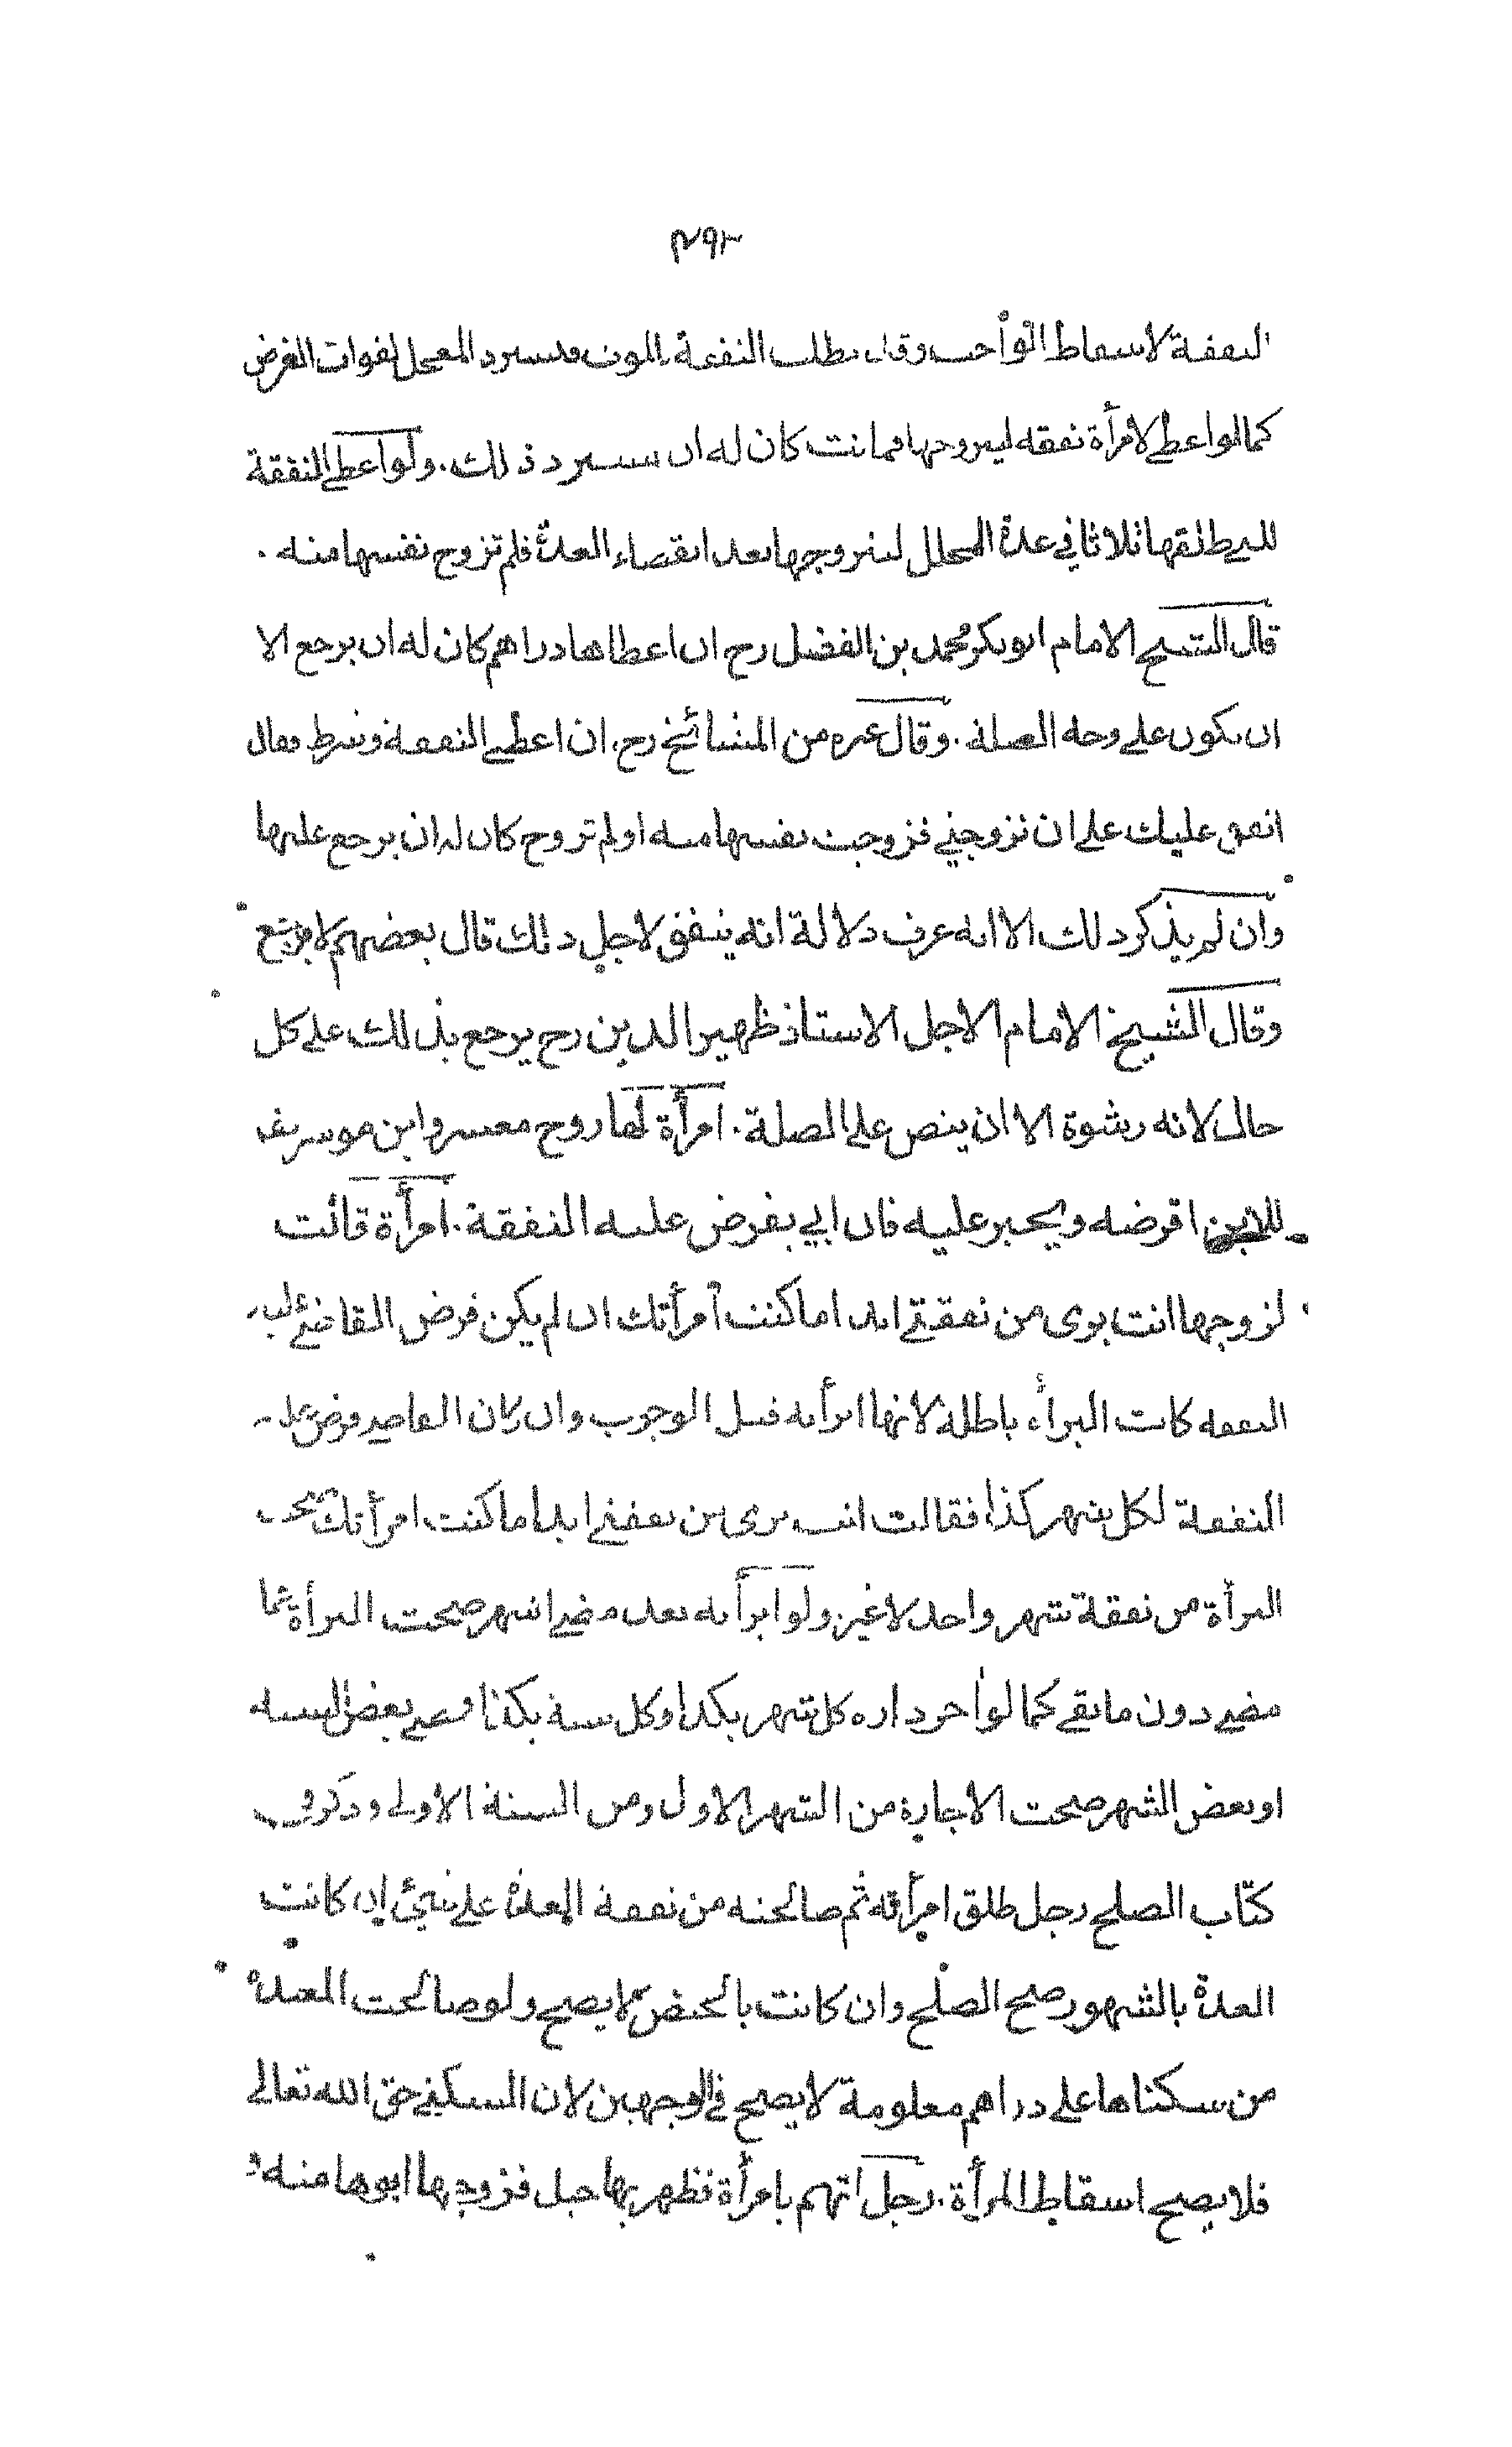 ٢٩٣
النفقة لاسقاط الواجب وقد بطلت النفقة بالموت فيسترد المعجل لفوات الغرض
كما لو اعطى لامرأة نفقة ليتزوجها فماتت كان له ان يسترد ذلك . ولو اعطى النفقة
للتي طلقها ثلاثا في عدة المحلل ليتزوجها بعد انقضاء العدة فلم تزوج نفسها منه .
قال الشيخ الامام ابو بكر محمد بن الفضل رح ان اعطاها دراهم كان له ان يرجع الا
ان يكون على وجه الصلة . وقال غيره من المشائخ رح . ان اعطى النفقة وشرط فقال
انفق عليك على ان تزوجيني فزوجت نفسها منه او لم تزوج كان له ان يرجع عليها
وان لم يذكر ذلك الا انه عرف دلالة انه ينفق لاجل ذلك قال بعضهم لا يرجع
وقال الشيخ الامام الاجل الاستاذ ظهير الدين رح يرجع بذلك على كل
حال لانه رشوة الا ان ينص على الصلة . امرأة لها زوج معسر وابن موسر يق
للابن اقرضه ويجبر عليه فان ابى يفرض عليه النفقة . امرأة قالت
لزوجها انت بري من نفقتي ابدا ما كنت امرأتك ان لم يكن فرض القاضي لها
النفقه كانت البراءة باطلة لانها ابرأته قبل الوجوب وان كان القاضي فرض عليه
النفقة لكل شهر كذا فقالت انت بري من نفقتي ابدا ما كنت امرأتك صحت
البرأة من نفقة شهر واحد لا غير ولو ابرأته بعد مضي اشهر صحت البرأة عما
مضى دون ما بقي كما لو اجر داره كل شهر بكذا وكل سنة بكذا ومضى بعض السنه
او بعض الشهر صحت الاجارة من الشهر الاول ومن السنة الاولى وذكر في
كتاب الصلح رجل طلق امرأته ثم صالحته من نفقة العدة على شيئ ان كانت
العدة بالشهور صح الصلح وان كانت بالحيض لا يصح ولو صالحت المعتدة
من سكناها على دراهم معلومة لا يصح في الوجهين لان السكنى حق الله تعالى
فلا يصح اسقاط المرأة . رجل اتهم بامرأة فظهر بها حبل فزوجها ابوها منه و